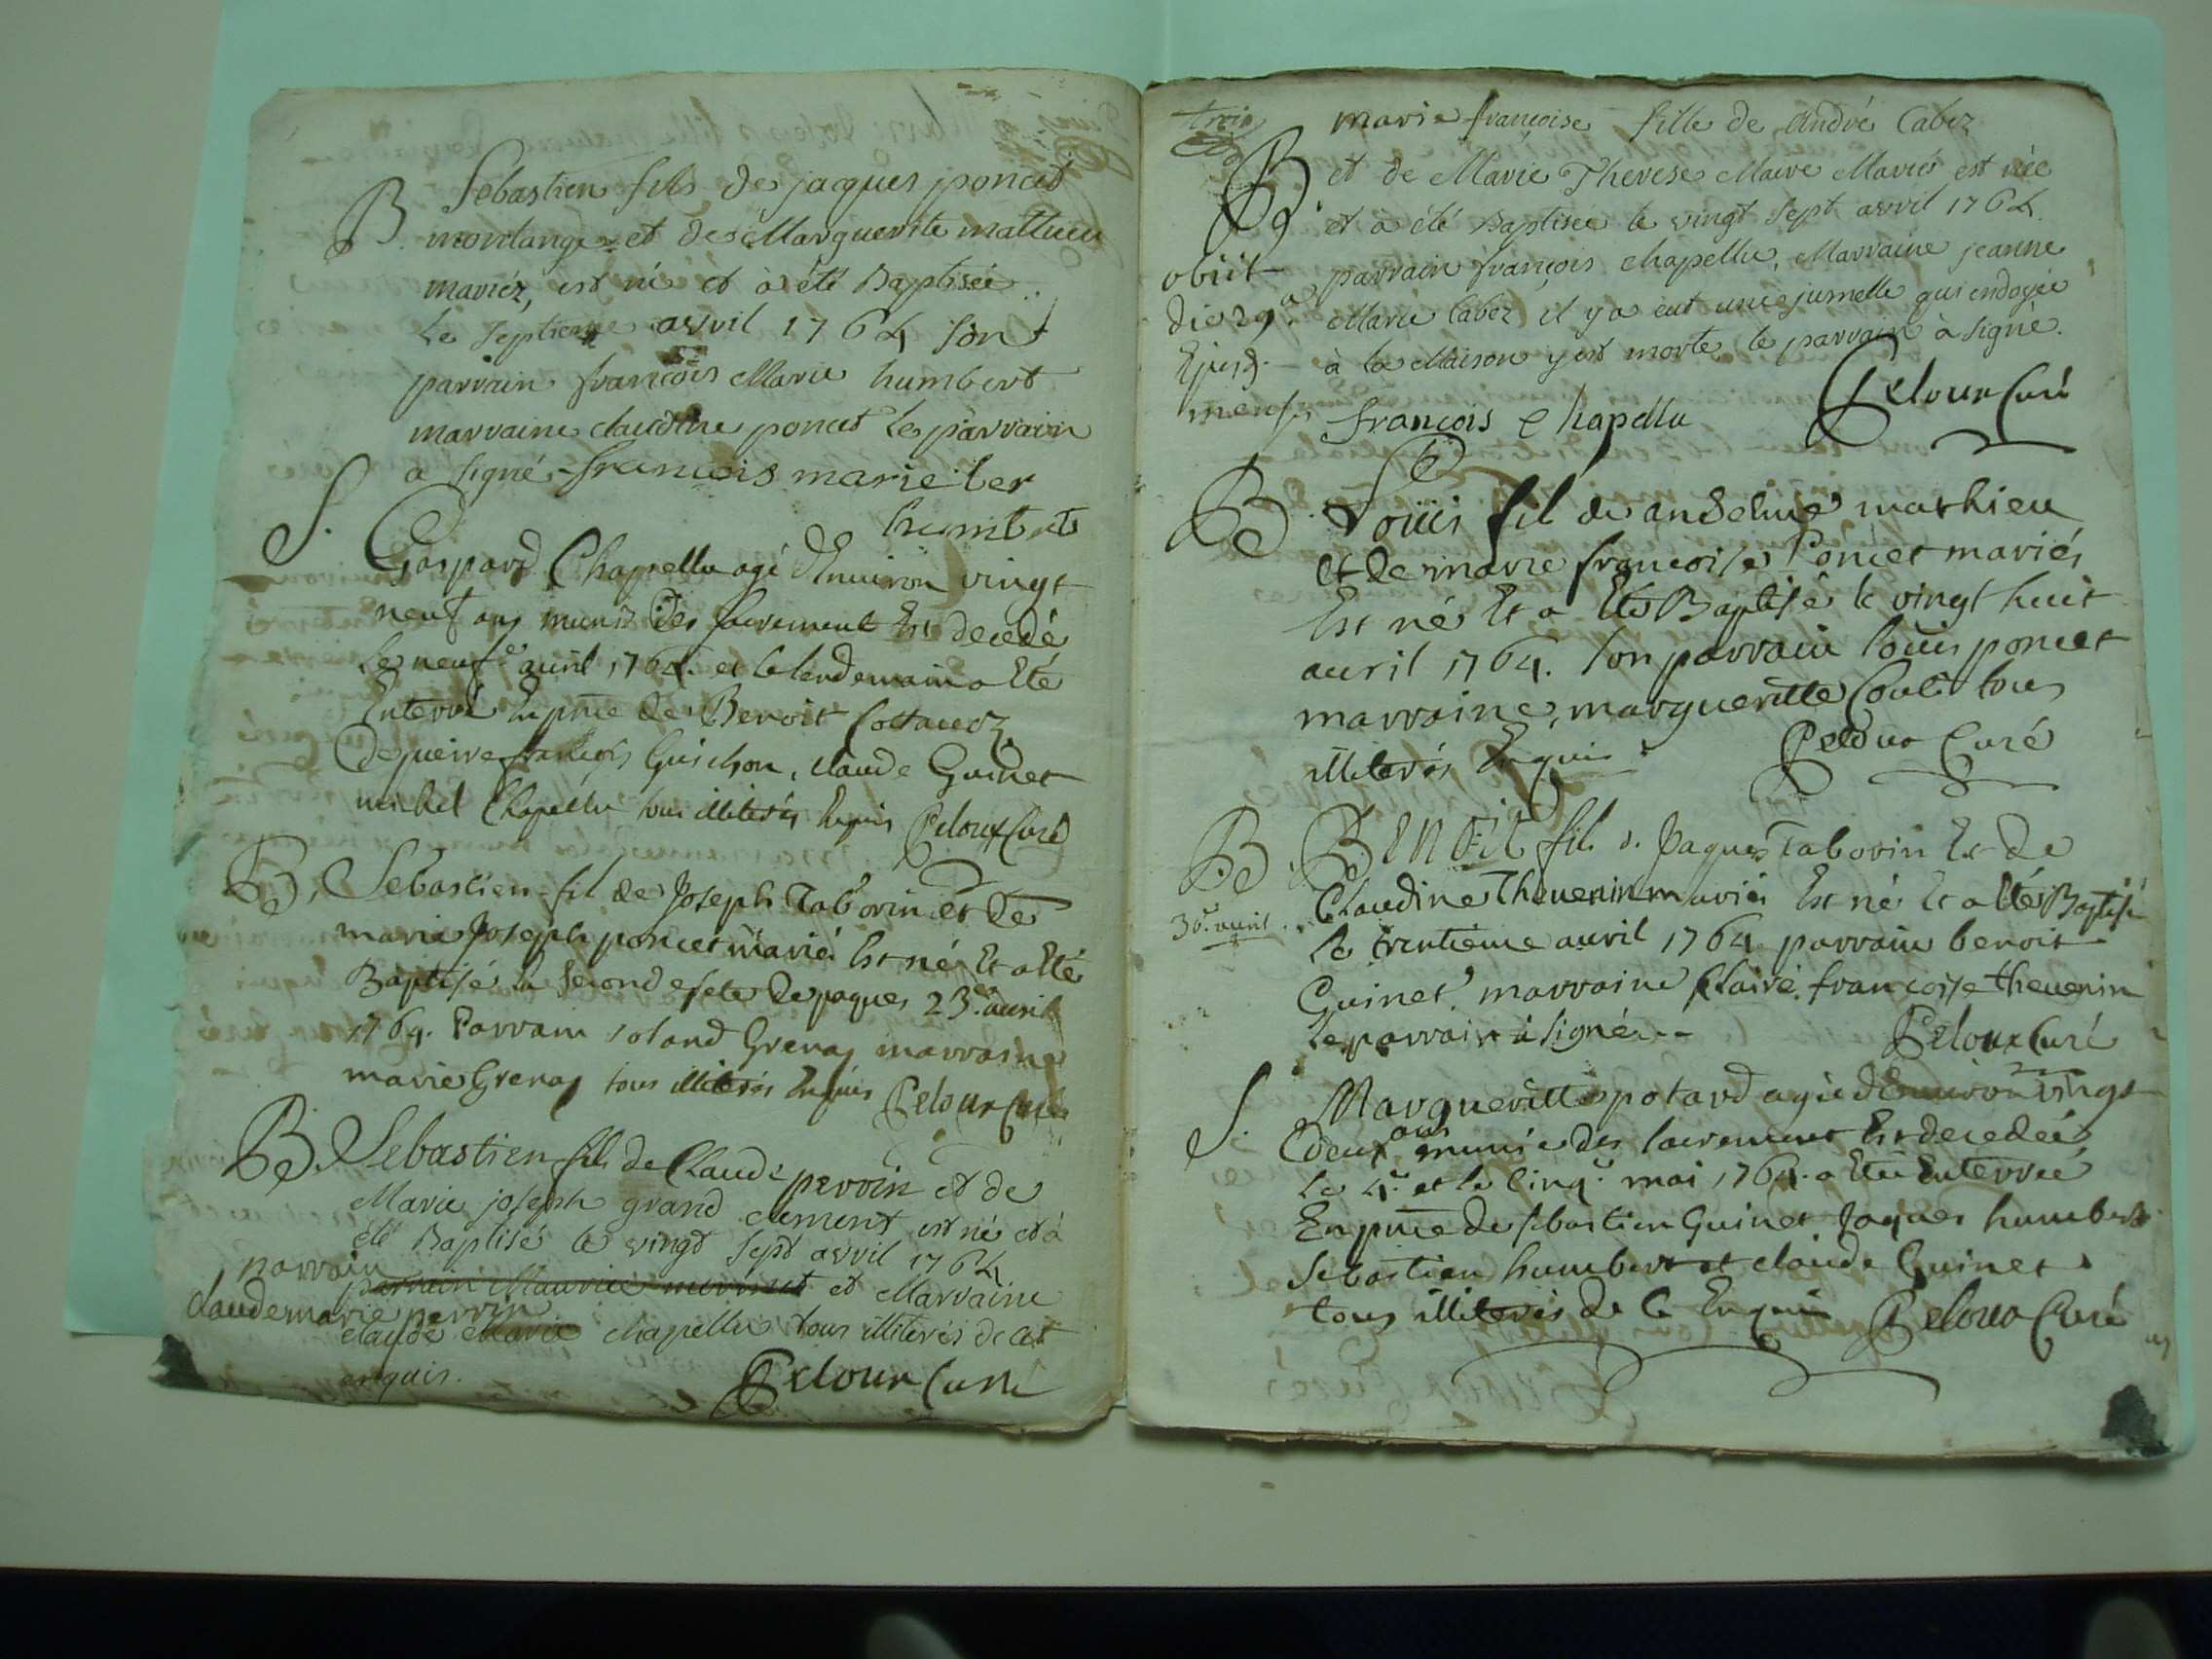 B. Sebastien fils de jaques poncet
montange et de Marguerite mathieu
mariéz, est né et à été Baptisée
Le septieme avvril 1764 son
parrain francois Marie humbert
marraine claudine poncet Le parrain
a signé francois marie ber
humberts
S. Gaspard Chapellu agé d'Environ vingt
neuf ans muni des sacrement Est decedé
Le neufe avril 1764. et le lendemain a Eté
Enterré En pnce de Benoit Cottavoz
De pierre francois Guichon, claude Guinet
michel Chapellu tous illiterés Enquis Peloux Curé
B. Sebastien fil de Joseph Taborin et De
marie Joseph poncet mariés Est né Et a Eté
Baptisé la seconde fete De paques 23e avril
1764. Parrain roland Grenaz marraine
marie Grenaz tous illiterés Enquis Peloux Curé
B. Sebastien fils de Claude perrin et de
Marie joseph grand clement est né et à
été Baptisé le vingt sept avvril 1764
parrain
parrain Maurice et Marraine
claude marie perrin
claude Marie chapellu tous illiterés de cet
enquis. Peloux Curé
trois
marie françoise fille de André Cabez
B. et de Marie Therese Maire Mariés est née
et à été Baptisée le vingt sept avvril 1764.
obiit
die 29a
Ejusd.
mensis
parrain françois chapellu, Marraine jeanne
Marie Cabez il y a eut une jumelle qui endoyée
à la Maison y est morte le parrain à signé.
françois Chapellu Peloux Curé
B. Loüis fil de andelme mathieu
Et de marie francoise Poncet mariés
Est né Et a Eté Baptisé le vingt huit
avril 1764. son parrain loüis poncet
marraine, margueritte tous
illiterés Enquis Peloux Curé
B. BENOIT fil d. Jaques Taborin Et De
30e. avril. Claudine Thevenin mariés Est né Et a Eté Baptisé
le trentieme avril 1764 parrain benoit
Guinet marraine Claire francoise thevenin
Le parrain à signé Peloux Curé
S. Margueritte potard agée d'Environ vingt
Deux ans munie des sacrement Est decedeé
Le 4e. et le cinqe. mai 1764. a Eté Enterreé
En pnce de sebastien Guinet Jaques humbert
Sebastien humbert et claude Guinet
tous illiterés de ce Enquis Peloux Curé